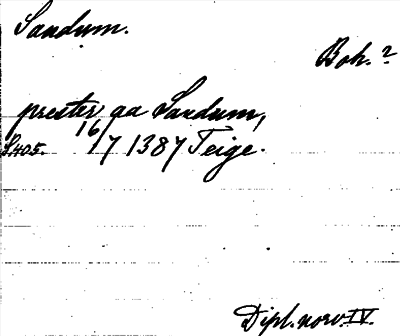 Sandum.
Boh.?
prester aa Sandum,
S.405. 16/7 1387 Teige.
Dipl. norv. IV.